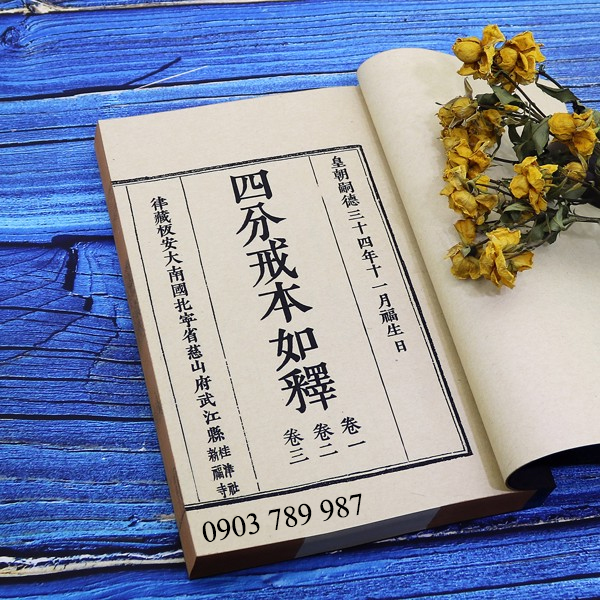 皇朝嗣德三十四年十一月福生日
四分戒本如釋
卷一
卷二
卷三
律藏板安大南國北寧省慈山府武江縣
桂津社
新福寺
0903 789 987